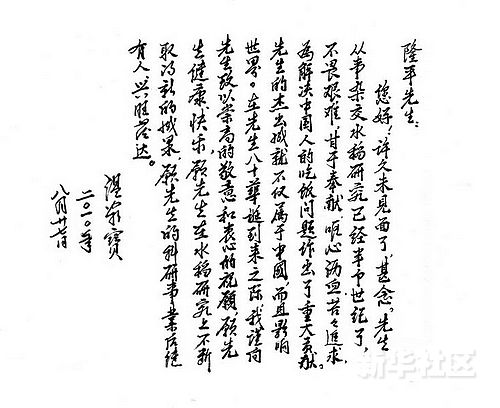 隆平先生：
您好！许久未见面了，甚念。先生
从事杂交水稻研究已经半个世纪了，
不畏艰难，甘于奉献，呕心沥血，苦苦追求，
为解决中国人的吃饭问题作出了重大贡献。
先生的杰出成就不仅属于中国，而且影响
世界。在先生八十华诞到来之际，我谨向
先生致以崇高的敬意和衷心的祝愿。愿先
生健康、快乐，愿先生在水稻研究上不断
取得新的成果，愿先生的科研事业后继
有人、兴旺发达。
温家宝
二〇一〇年
八月廿七日
新华社区